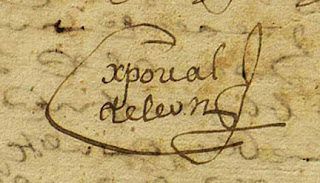 xpoval
de leon